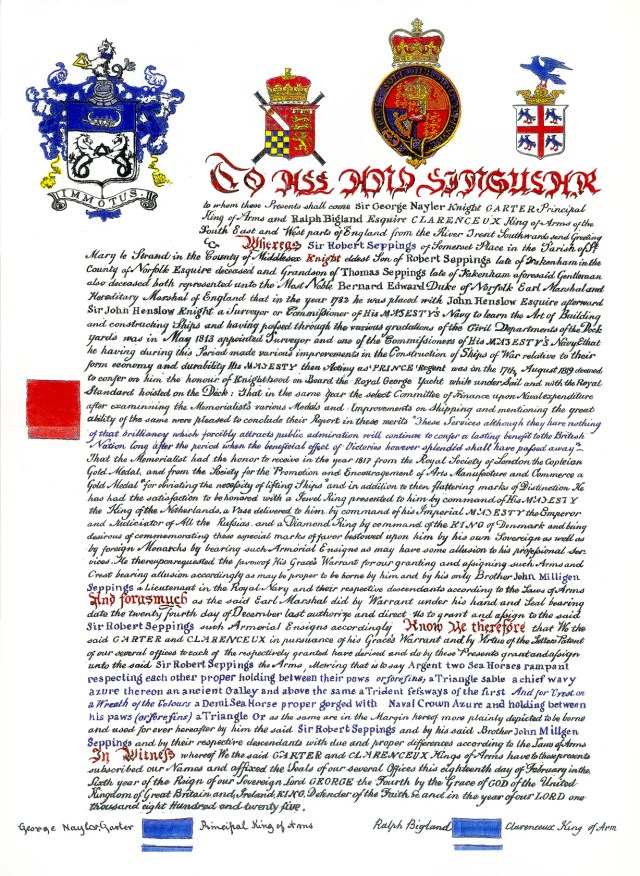 IMMOTUS
TO ALL AND SINGULAR
to whom these Presents shall come Sir George Nayler Knight GARTER Principal
King of Arms and Ralph Bigland Esquire CLARENCEUX King of Arms of the
South East and West parts of England from the River Trent Southwards send Greeting
Whereas Sir Robert Seppings of Somerset Place in the Parish of St
Mary le Strand in the County of Middlesex Knight eldest Son of Robert Seppings late of Fakenham in the
County of Norfolk Esquire deceased and Grandson of Thomas Seppings late of Fakenham aforesaid Gentleman
also deceased both represented unto the Most Noble Bernard Edward Duke of Norfolk Earl Marshal and
Hereditary Marshal of England that in the year 1782 he was placed with John Henslow Esquire afterward
Sir John Henslow Knight a Surveyor or Commissioner of His MAJESTY'S Navy to learn the Art of Building
and constructing Ships and having passed through the various gradations of the Civil Departments of the Dock
yards was in May 1813 appointed Surveyor and one of the Commissioners of His MAJESTY'S Navy & that
he having during this Period made various improvements in the Construction of Ships of War relative to their
form economy and durability His MAJESTY then Acting as PRINCE Regent was on the 17th August 1819 deemed
to confer on him the honour of Knighthood on Board the Royal George Yacht while under Sail and with the Royal
Standard hoisted on the Deck: That in the same year the select Committee of Finance upon Naval expenditure
after examinning the Memorialist's various Medals and Improvements on Shipping and mentioning the great
ability of the same were pleased to conclude their Report in these merits "These Services although they have nothing
of that brilliancy which forcibly attracts public admiration will continue to confer a lasting benefit to the British
Nation long after the period when the beneficial effect of Victories however splendid shall have passed away"–
That the Memorialist had the honor to receive in the year 1817 from the Royal Society of London the Copleian
Gold Medal, and from the Society for the Promotion and Encouragement of Arts Manufacture and Commerce a
Gold Medal "for obviating the necessity of lifting Ships" and in addition to then flattering marks of Distinction He
has had the satisfaction to be honored with a Jewel Ring presented to him by command of His MAJESTY
the King of the Netherlands, a Vase delivered to him by command of his Imperial MAJESTY the Emperor
and of All the Russias and a Diamond Ring by command of the KING of Denmark and being
desirous of commemorating these especial marks of favor bestowed upon him by his own Sovereign as well as
by foreign Monarchs by bearing such Armorial Ensigns as may have some allusion to his professional Ser-
vices. He thereupon requested the favor of His Grace's Warrant for our granting and assigning such Arms and
Crest bearing allusion accordingly as may be proper to be borne by him and by his only Brother John Milligen
Seppings a Lieutenant in the Royal Navy and their respective descendants according to the Laws of Arms
And forasmuch as the said Earl Marshal did by Warrant under his hand and Seal bearing
date the twenty fourth day of December last authorize and direct Us to grant and assign to the said
Sir Robert Seppings such Armorial Ensigns accordingly Know Ye therefore that We the
said GARTER and CLARENCEUX in pursuance of his Grace's Warrant and by Virtue of the Letters Patent
of our several offices to each of the respectively granted have derived and do by these Presents grant and assign
unto the said Sir Robert Seppings the Arms, that is to say Argent two Sea Horses rampant
respecting each other proper holding between their paws or forefins; a Triangle sable a chief wavy
azure thereon an ancient Galley and above the same a Trident fessways of the first And for Crest on
a Wreath of the Colours a Demi Sea Horse proper gorged with Naval Crown Azure and holding between
his paws (or forefins) a Triangle Or as the same are in the Margin hereof more plainly depicted to be borne
and used for ever hereafter by him the said Sir Robert Seppings and by his said Brother John Milligen
Seppings and by their respective descendants with due and proper differences according to the Laws of Arms
In Witness whereof We the said GARTER and CLARENCEUX Kings of Arms have to these presents
subscribed our Names and affixed the Seals of our several Offices this eighteenth day of February in the
Sixth year of the Reign of our Sovereign Lord GEORGE the Fourth by the Grace of GOD of the United
Kingdom of Great Britain and, Ireland, KING, Defender of the Faith & and in the year of our LORD one
thousand eight Hundred and twenty five.
George Nayler, Garter Principal King of Arms Ralph Bigland Clarenceux King of Arm